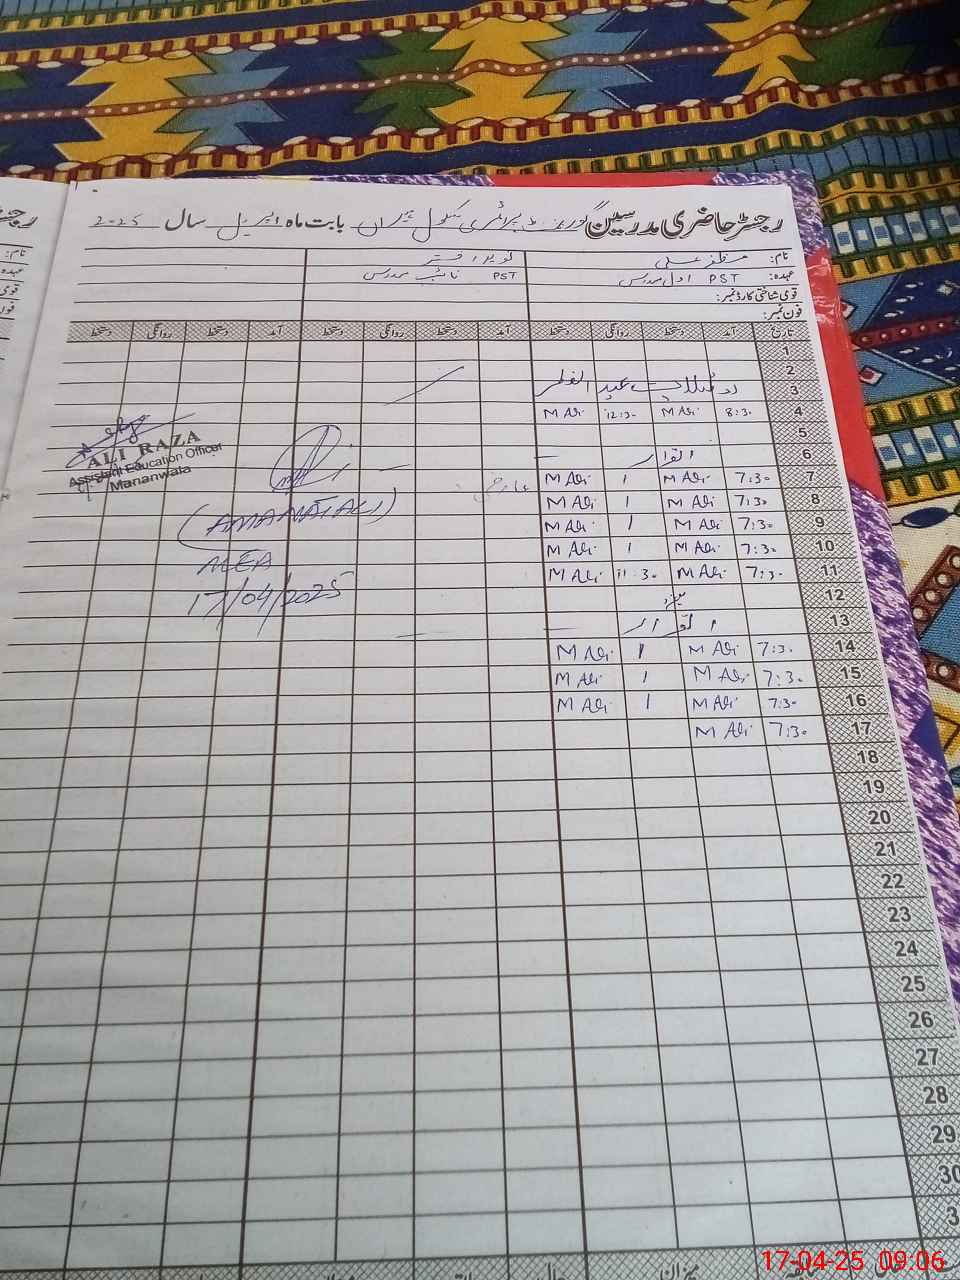 رجٹر حاضری مدرسین گورنمنٹ پرائمری سکول بابت ماہ اپریل سال 2025
نام:
عہدہ: PST اول مدرس PST نائب مدرس
قومی شناختی کارڈ نمبر:
فون نمبر:
تاریخ آمد دستخط روانگی دستخط آمد دستخط روانگی دستخط آمد دستخط روانگی دستخط
1
2
3 عید الفطر
4 8:30 M Ali 12:30 M Ali
5
6 اتوار
7 7:30 M Ali 1 M Ali
8 7:30 M Ali 1 M Ali
9 7:30 M Ali 1 M Ali
10 7:30 M Ali 1 M Ali
11 7:30 M Ali 11:30 M Ali
12
13 اتوار
14 7:30 M Ali 1 M Ali
15 7:30 M Ali 1 M Ali
16 7:30 M Ali 1 M Ali
17 7:30 M Ali
18
19
20
21
22
23
24
25
26
27
28
29
30
3
ALI RAZA
Assistant Education Officer
Mananwala
(AMANAT ALI)
MEA
17/04/2025
میزان
17-04-25 09:06